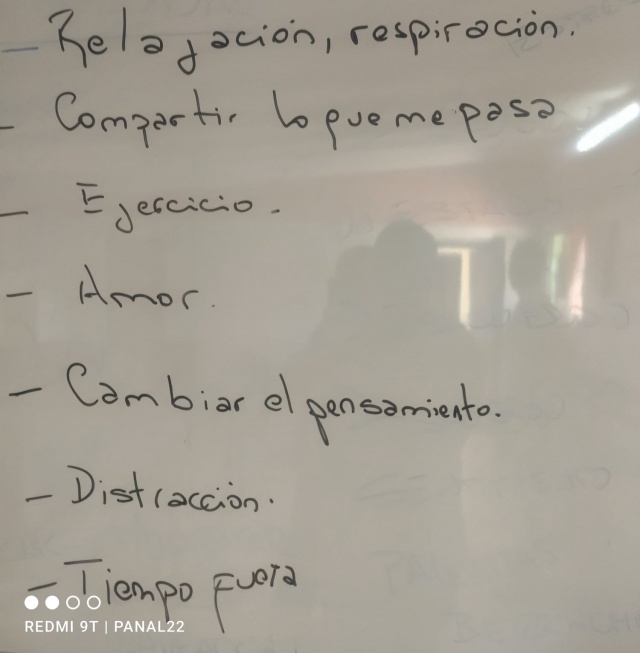 - Relajación, respiración.
- Compartir lo que me pasa
- Ejercicio.
- Amor.
- Cambiar el pensamiento.
- Distracción.
- Tiempo fuera
REDMI 9T | PANAL22